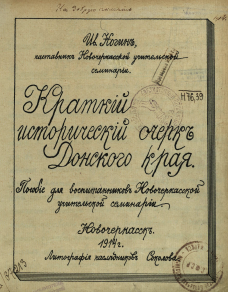 На добрую память
Ш. Когинъ,
наставникъ Новочеркасской учительской
семинаріи.
Н 76,39
Краткій
историческій очеркъ
Донского края.
Пособіе для воспитанниковъ Новочеркасской
учительской семинаріи
Новочеркасскъ.
1914 г.
Литографія наслѣдниковъ